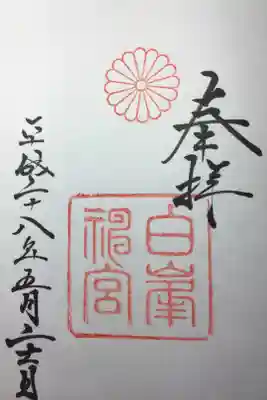 奉拝
白峯
神宮
平成二十八年五月二十一日